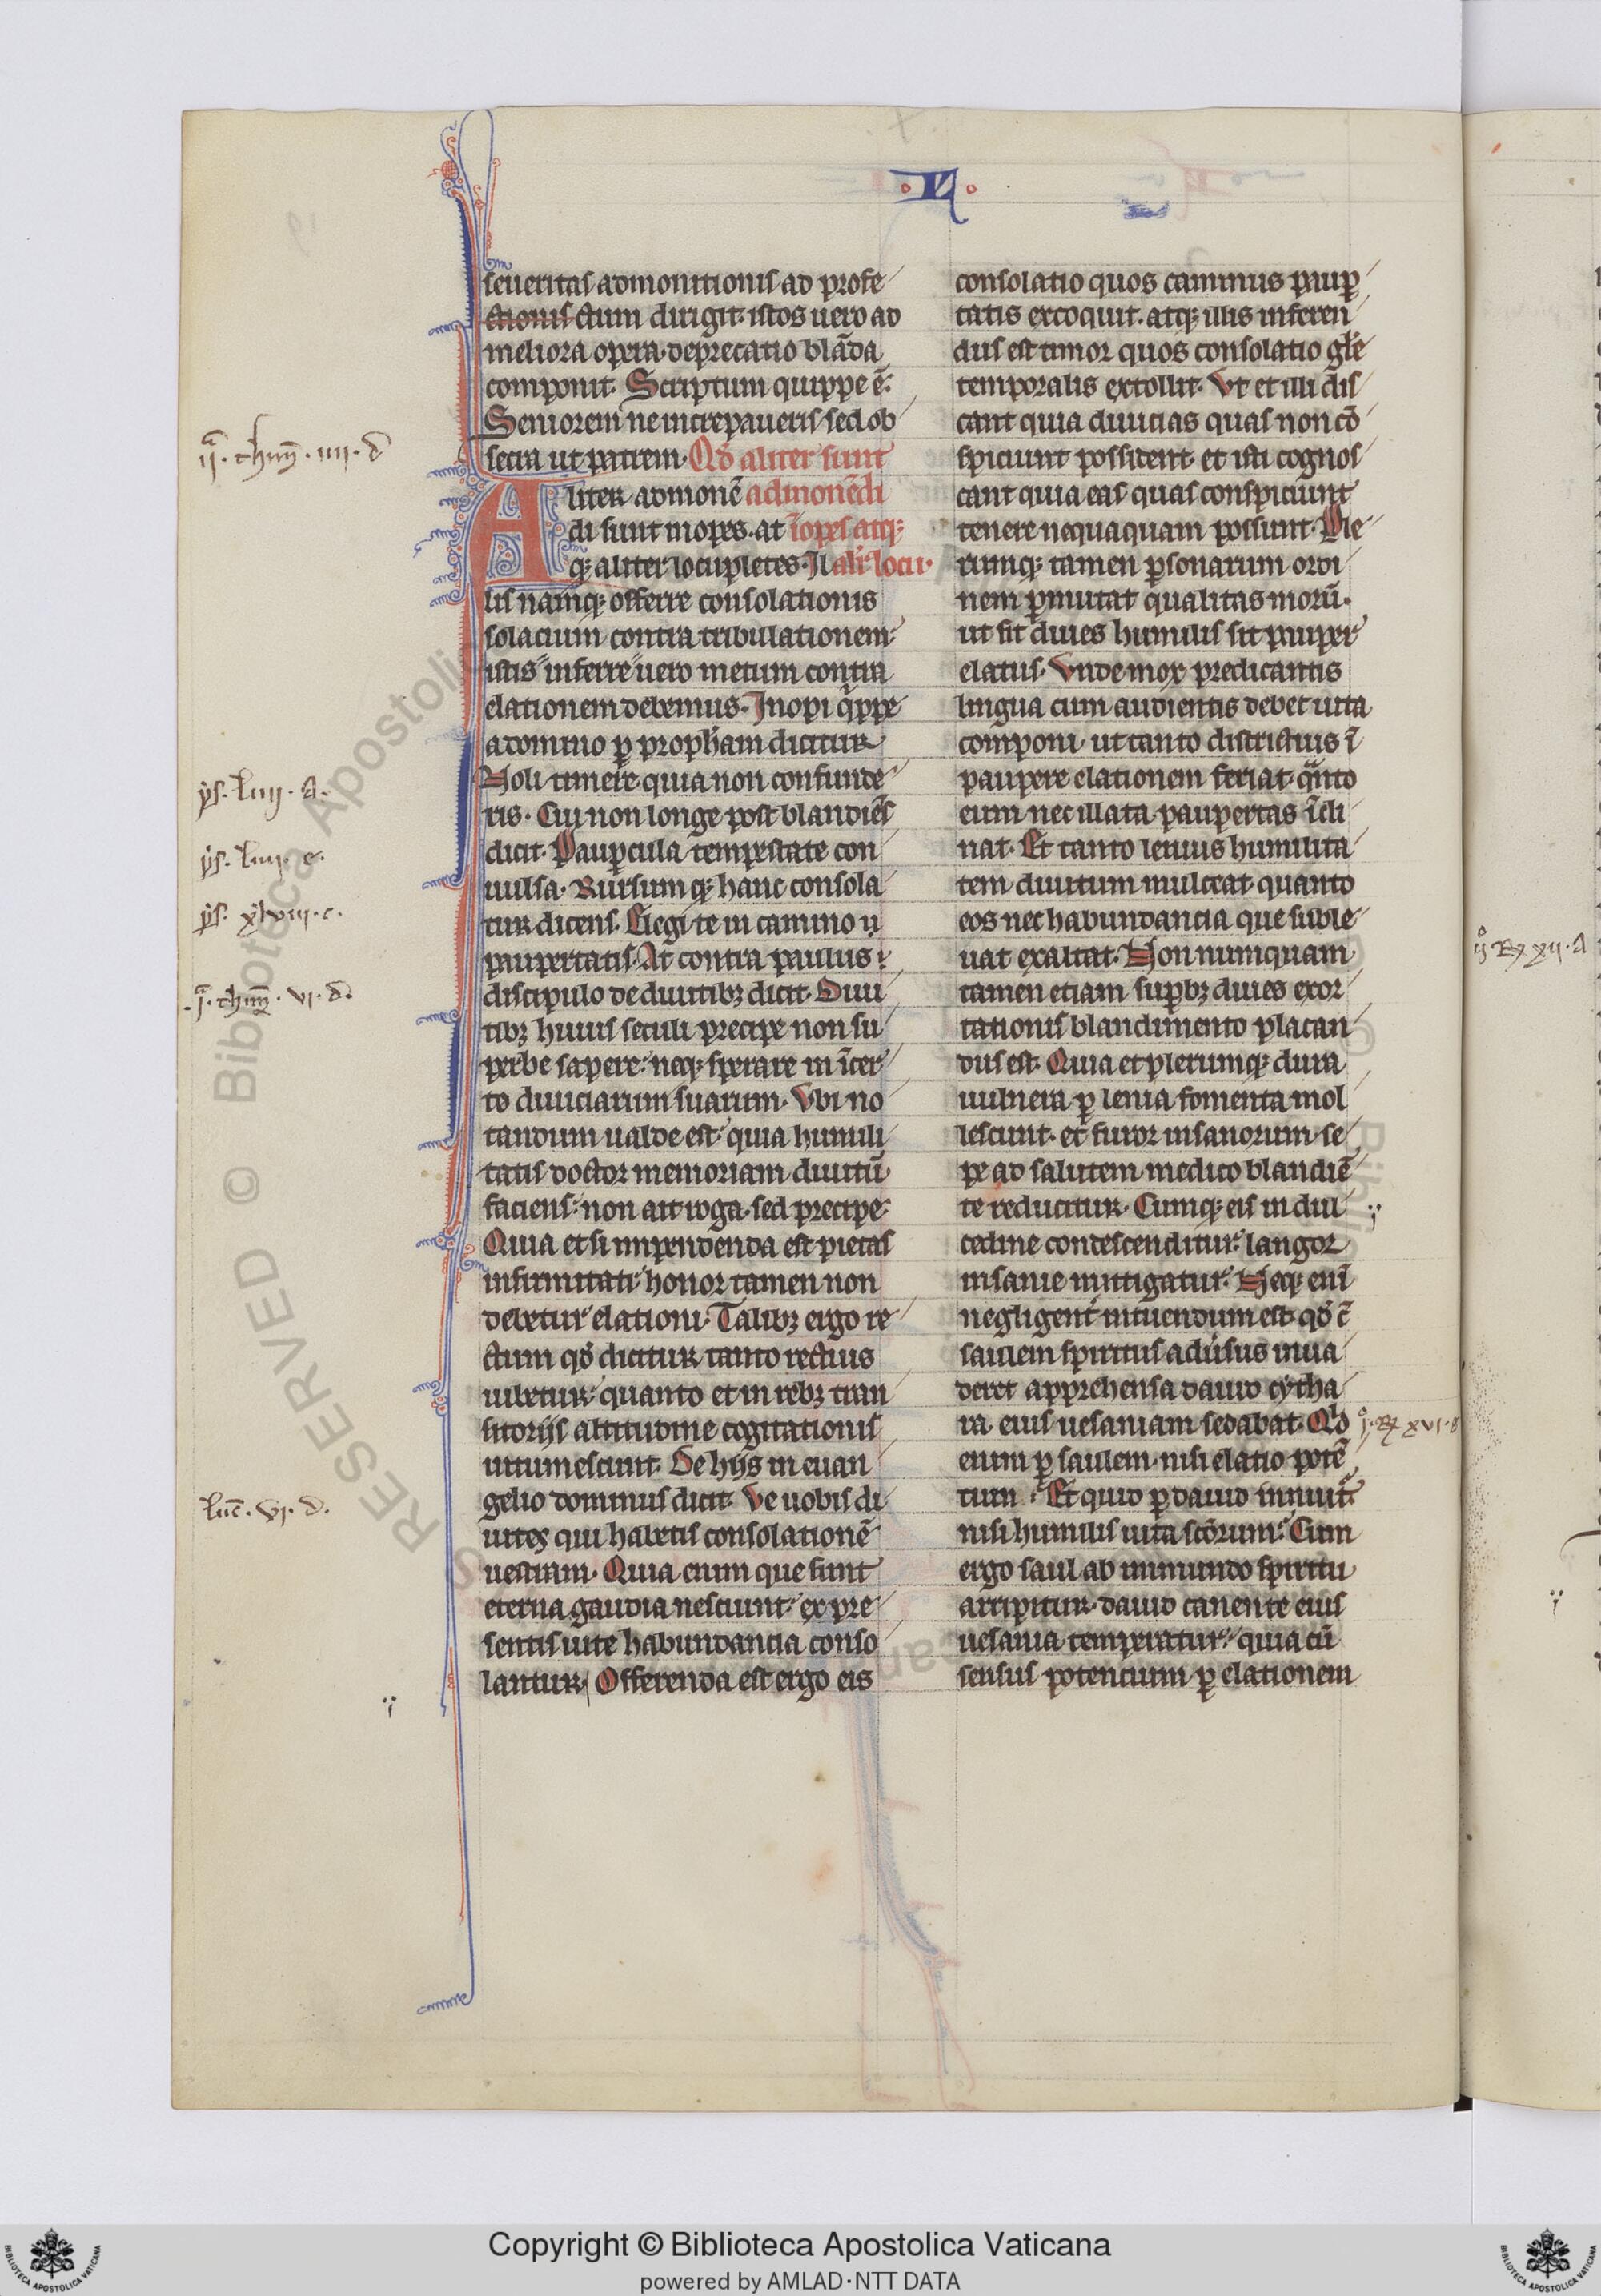 seueritas admonitionis ad profe
ctionis ctum dirigit. istos uero ad
meliora opera. deprecatio blāda
componit. Scriptum quippe ē.
Seniorem ne increpaueris sed ob
secra ut patrem. Qd̄ aliter sunt
Aliter admonē admonēdi
di sunt inopes. at īopes atq;
q; aliter locupletes. Il ali locu
lis namq; offerre consolationis
solacium contra tribulationem
istis inferre uero metum contra
elationem debemus. Inopi q̄ppe
a domino ꝑ propham dicitur
Noli timere quia non confunde
ris. Cui non longe post blandiēs
dicit. Paupcula tempestate con
uulsa. Rursum q; hanc consola
tur dicens. Elegi te in camino
paupertatis. At contra paulus
discipulo de diuitibꝫ dicit. Diui
tibꝫ huius seculi precipe non su
perbe sapere. neq; sperare in īcer
to diuiciarum suarum. Vbi no
tandum ualde est quia humili
tatis doctor memoriam diuitū
faciens. non ait roga. sed precipe.
Quia et si impendenda est pietas
infirmitati. honor tamen non
debetur elationi. Talibꝫ ergo re
ctum qd̄ dicitur tanto rectius
iubetur quanto et in rebꝫ tran
sitorijs altitudine cogitationis
intumescunt. De hijs in euan
gelio dominus dicit. Ve uobis di
uites qui habetis consolationē
uestram. Quia enim que sunt
eterna gaudia nesciunt. ex pre
sentis uite habundancia conso
lantur. Offerenda est ergo eis
IIa. thim̄. IIII. d
ys. liiij. a.
ys. liiij. c.
ys. xlviii. c.
Ia. thim̄. vi. d.
luc̄. vi. d.
consolatio quos caminus paup
tatis excoquit. atq; illis inferen
dus est timor quos consolatio glīe
temporalis extollit. Vt et illi dis
cant quia diuicias quas non cō
spiciunt possident et isti cognos
cant quia eas quas conspiciunt
tenere nequaquam possunt. Ple
rumq; tamen ꝑsonarum ordi
nem ꝑmutat qualitas morū.
ut sit diues humilis sit pauper
elatus. Vnde mox predicantis
lingua cum audientis debet uita
componi. ut tanto districtius ī
paupere elationem feriat. qanto
eum nec illata paupertas īcli
nat. Et tanto lenius humilita
tem diuitum mulceat quanto
eos nec habundancia que suble
uat exaltat. Non numquam
tamen etiam supbꝫ diues exor
tationis blandimento placan
dus est. Quia et plerumq; dura
uulnera ꝑ lenia fomenta mol
lescunt. et furor insanorum se
pe ad salutem medico blandiē
te reducitur. Cumq; eis in dul
cedine condescenditur. langor
insanie mitigatur. Neq; enī
negligent intuendum est. qd̄ c̄
saulem spiritus adūsus inua
deret apprehensa dauid cytha
ra. eius uesaniam sedabat. Qd
enim ꝑ saulem nisi elatio potē
tum. Et quid ꝑ dauid innuitr
nisi humilis uita scōrum. Cum
ergo saul ab inmundo spiritu
arripitur. dauid canente eius
uesania temperatur. quia cū
sensus potencium ꝑ elationem
I. R. xvi.
II R xii. A
© Biblioteca Apostolica
RESERVED
Copyright © Biblioteca Apostolica Vaticana
powered by AMLAD·NTT DATA
BIBLIOTECA APOSTOLICA VATICANA
BIBLIOTECA APOSTOLICA VATICANA